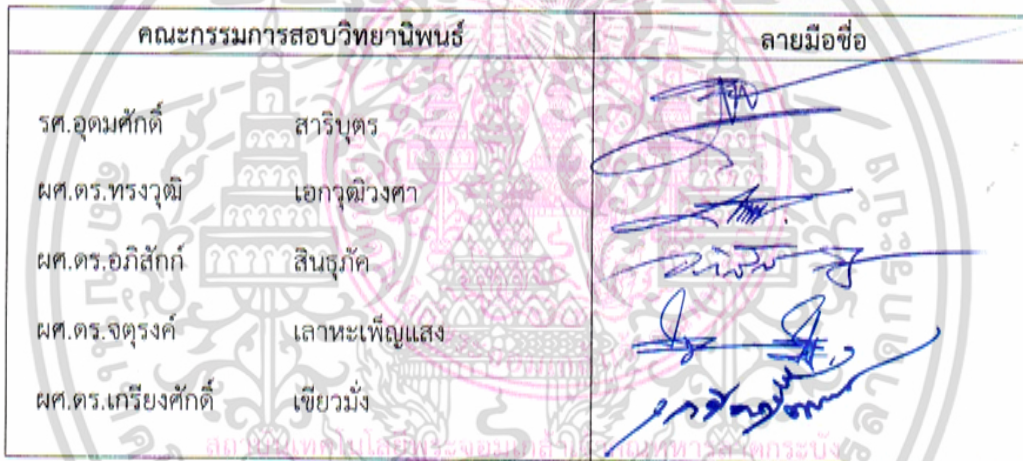 คณะกรรมการสอบวิทยานิพนธ์ ลายมือชื่อ
รศ.อุดมศักดิ์ สาริบุตร
ผศ.ดร.ทรงวุฒิ เอกวุฒิวงศา
ผศ.ดร.อภิสักก์ สินธุภัค
ผศ.ดร.จตุรงค์ เลาหะเพ็ญแสง
ผศ.ดร.เกรียงศักดิ์ เขียวมั่ง
สถาบันเทคโนโลยีพระจอมเกล้าเจ้าคุณทหารลาดกระบัง